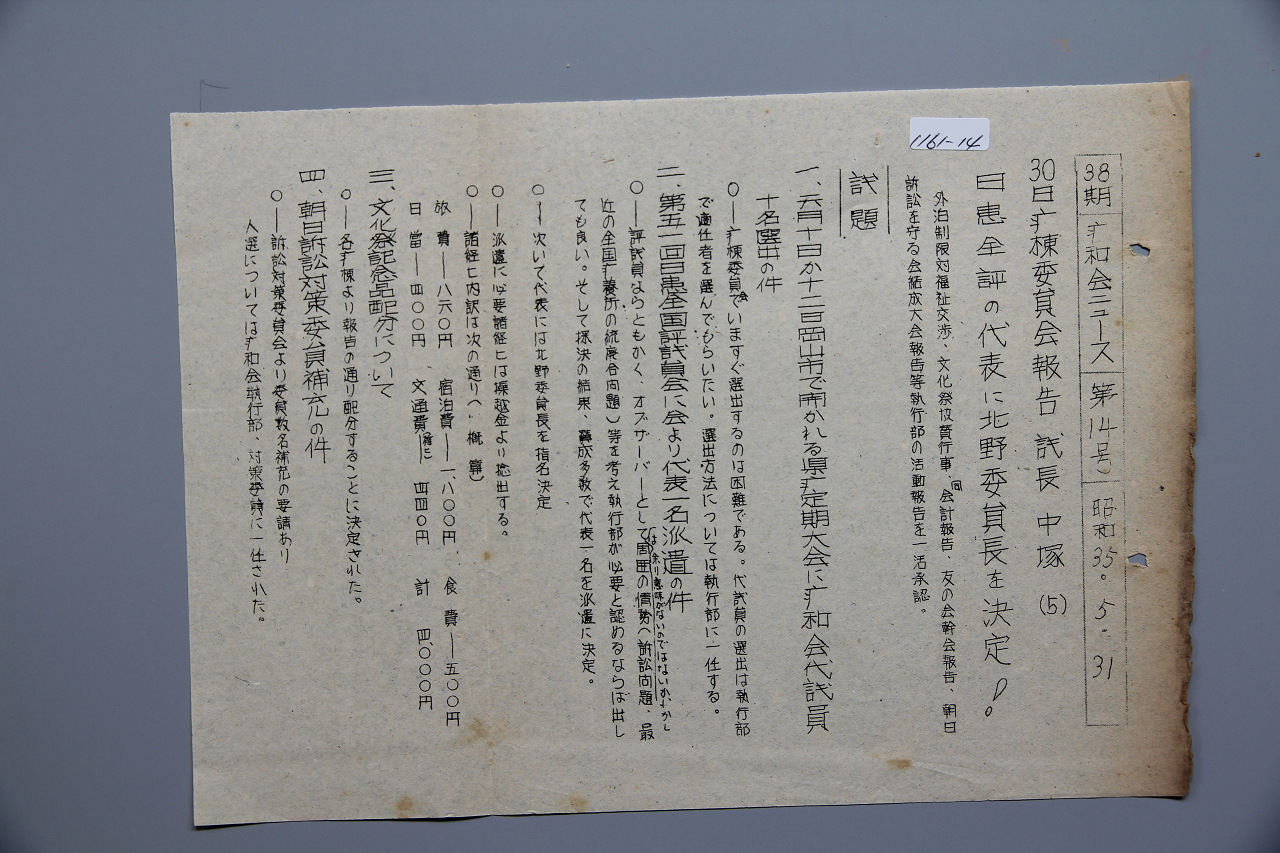 1161-14
38期 疒和会ニュース 第14号 昭和35.5.31
30日疒棟委員会報告 議長 中塚 (5)
日患全評の代表に北野委員長を決定!。
外泊制限対福祉交渉、文化祭收費行事、同会計報告、友の会幹会報告、朝日
訴訟を守る会結成大会報告等執行部の活動報告を一活承認。
議題
一、六月十日か十二日岡山市で開かれる県疒定期大会に疒和会代議員
十名選出の件
○―疒棟委員会でいますぐ選出するのは困難である。代議員の選出は執行部
で適任者を選んでもらいたい。選出方法については執行部に一任する。
二、第五一回日患全国評議員会に会より代表一名派遣の件
○―評議員ならともかく、オブザーバーとしては余り意味がないのではないか、しかし
周囲の情勢(訴訟問題、最
近の全国疒養所の統廃合問題)等を考え執行部が必要と認めるならば出し
ても良い。そして採決の結果、賛成多数で代表一名を派遣に決定。
○―次いで代表には北野委員長を指名決定
○―派遣に必要諸経ヒは繰越金より捻出する。
○―諸経ヒ内訳は次の通り(概算)
旅費―八六〇円 宿泊費―一、八〇〇円、食費―五〇〇円
日當―四〇〇円、交通費(雑ヒ)―四四〇円 計 四、〇〇〇円
三、文化祭記念品配分について
○―各疒棟より報告の通り配分することに決定された。
四、朝日訴訟対策委員補充の件
○―訴訟対策委員会より委員数名補充の要請あり
人選については疒和会執行部、対策委員に一任された。